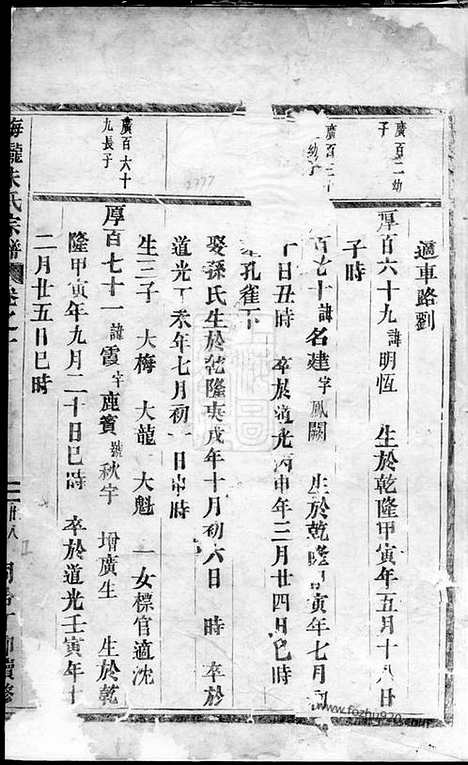 適車路劉
廣百二幼子
厚百六十九諱明恆 生於乾隆甲寅年五月十八日
子時
百七十諱名建字鳳闕 生於乾隆甲寅年七月
日丑時 卒於道光丙申年三月廿四日巳時
孔雀下
娶孫氏生於乾隆庚戌年十月初六日 時 卒於
道光丁未年七月初一日申時
生三子 大梅 大龍 大魁 一女標官適沈
廣百六十九長子
厚百七十一諱霞字鹿賓號秋宇 增廣生 生於乾
隆甲寅年九月二十日巳時 卒於道光壬寅年十
二月廿五日巳時
朱氏宗譜
廿八
2777
www.fozhu920.com